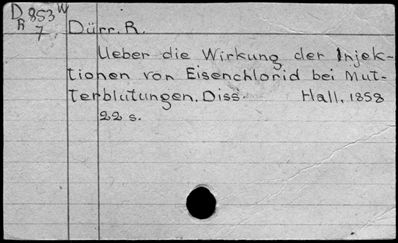 D 853 W
R 7
Dürr. R.
Ueber die Wirkung der Injek-
tionen von Eisenchlorid bei Mut-
terblutungen. Diss. Hall, 1858
22 s.